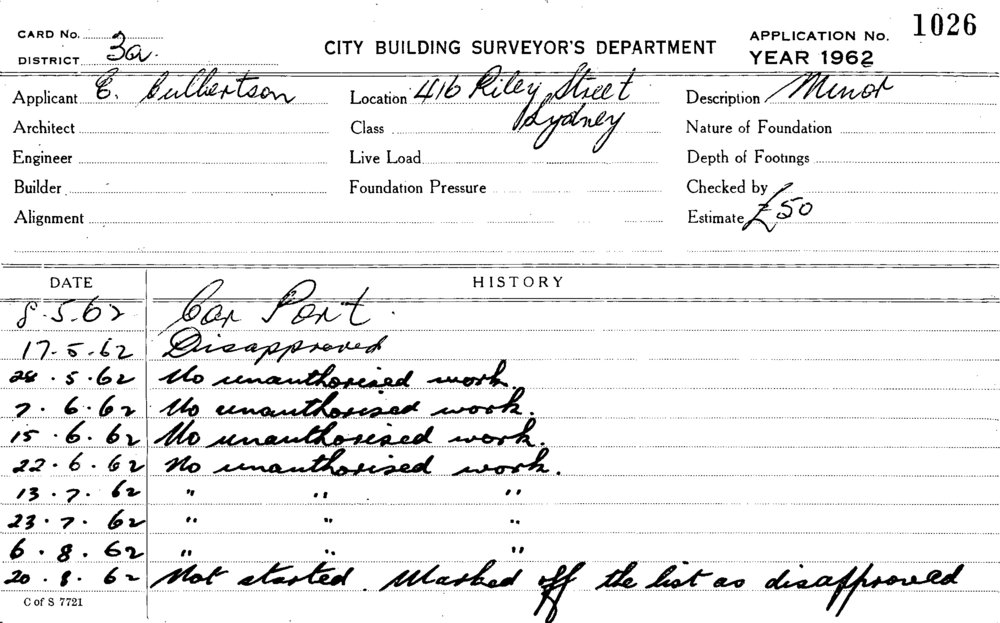 CARD No.
DISTRICT 3a.
CITY BUILDING SURVEYOR'S DEPARTMENT
APPLICATION No. 1026
YEAR 1962
Applicant E. Culbertson Location 416 Riley Street Description Minor
Architect Class Sydney Nature of Foundation
Engineer Live Load Depth of Footings
Builder Foundation Pressure Checked by
Alignment Estimate £50
DATE HISTORY
8.5.62 Car Port.
17.5.62 Disapproved
28.5.62 No unauthorised work.
7.6.62 No unauthorised work.
15.6.62 No unauthorised work.
22.6.62 No unauthorised work.
13.7.62 " " "
23.7.62 " " "
6.8.62 " " "
20.8.62 Not started. Marked off the list as disapproved
C of S 7721